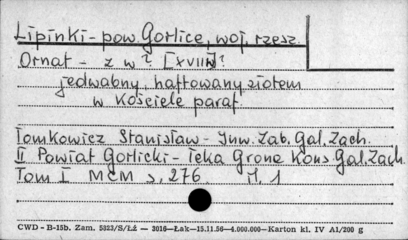 Lipinki - pow. Gorlice, woj. rzesz.
Ornat - z w ? [XVIIIw]?
jedwabny, haftowany złotem
w kościele paraf.
Tomkowicz Stanisław - Inw. Zab. Gal. Zach.
II Powiat Gorlicki - Teka Grona Kons. Gal. Zach.
Tom I MCM s, 276. il. 1
CWD - B-15b. Zam. 5823/S/ŁŻ — 3010—Łak—15.11.56—4.000.000—Karton kl. IV A1/200 g